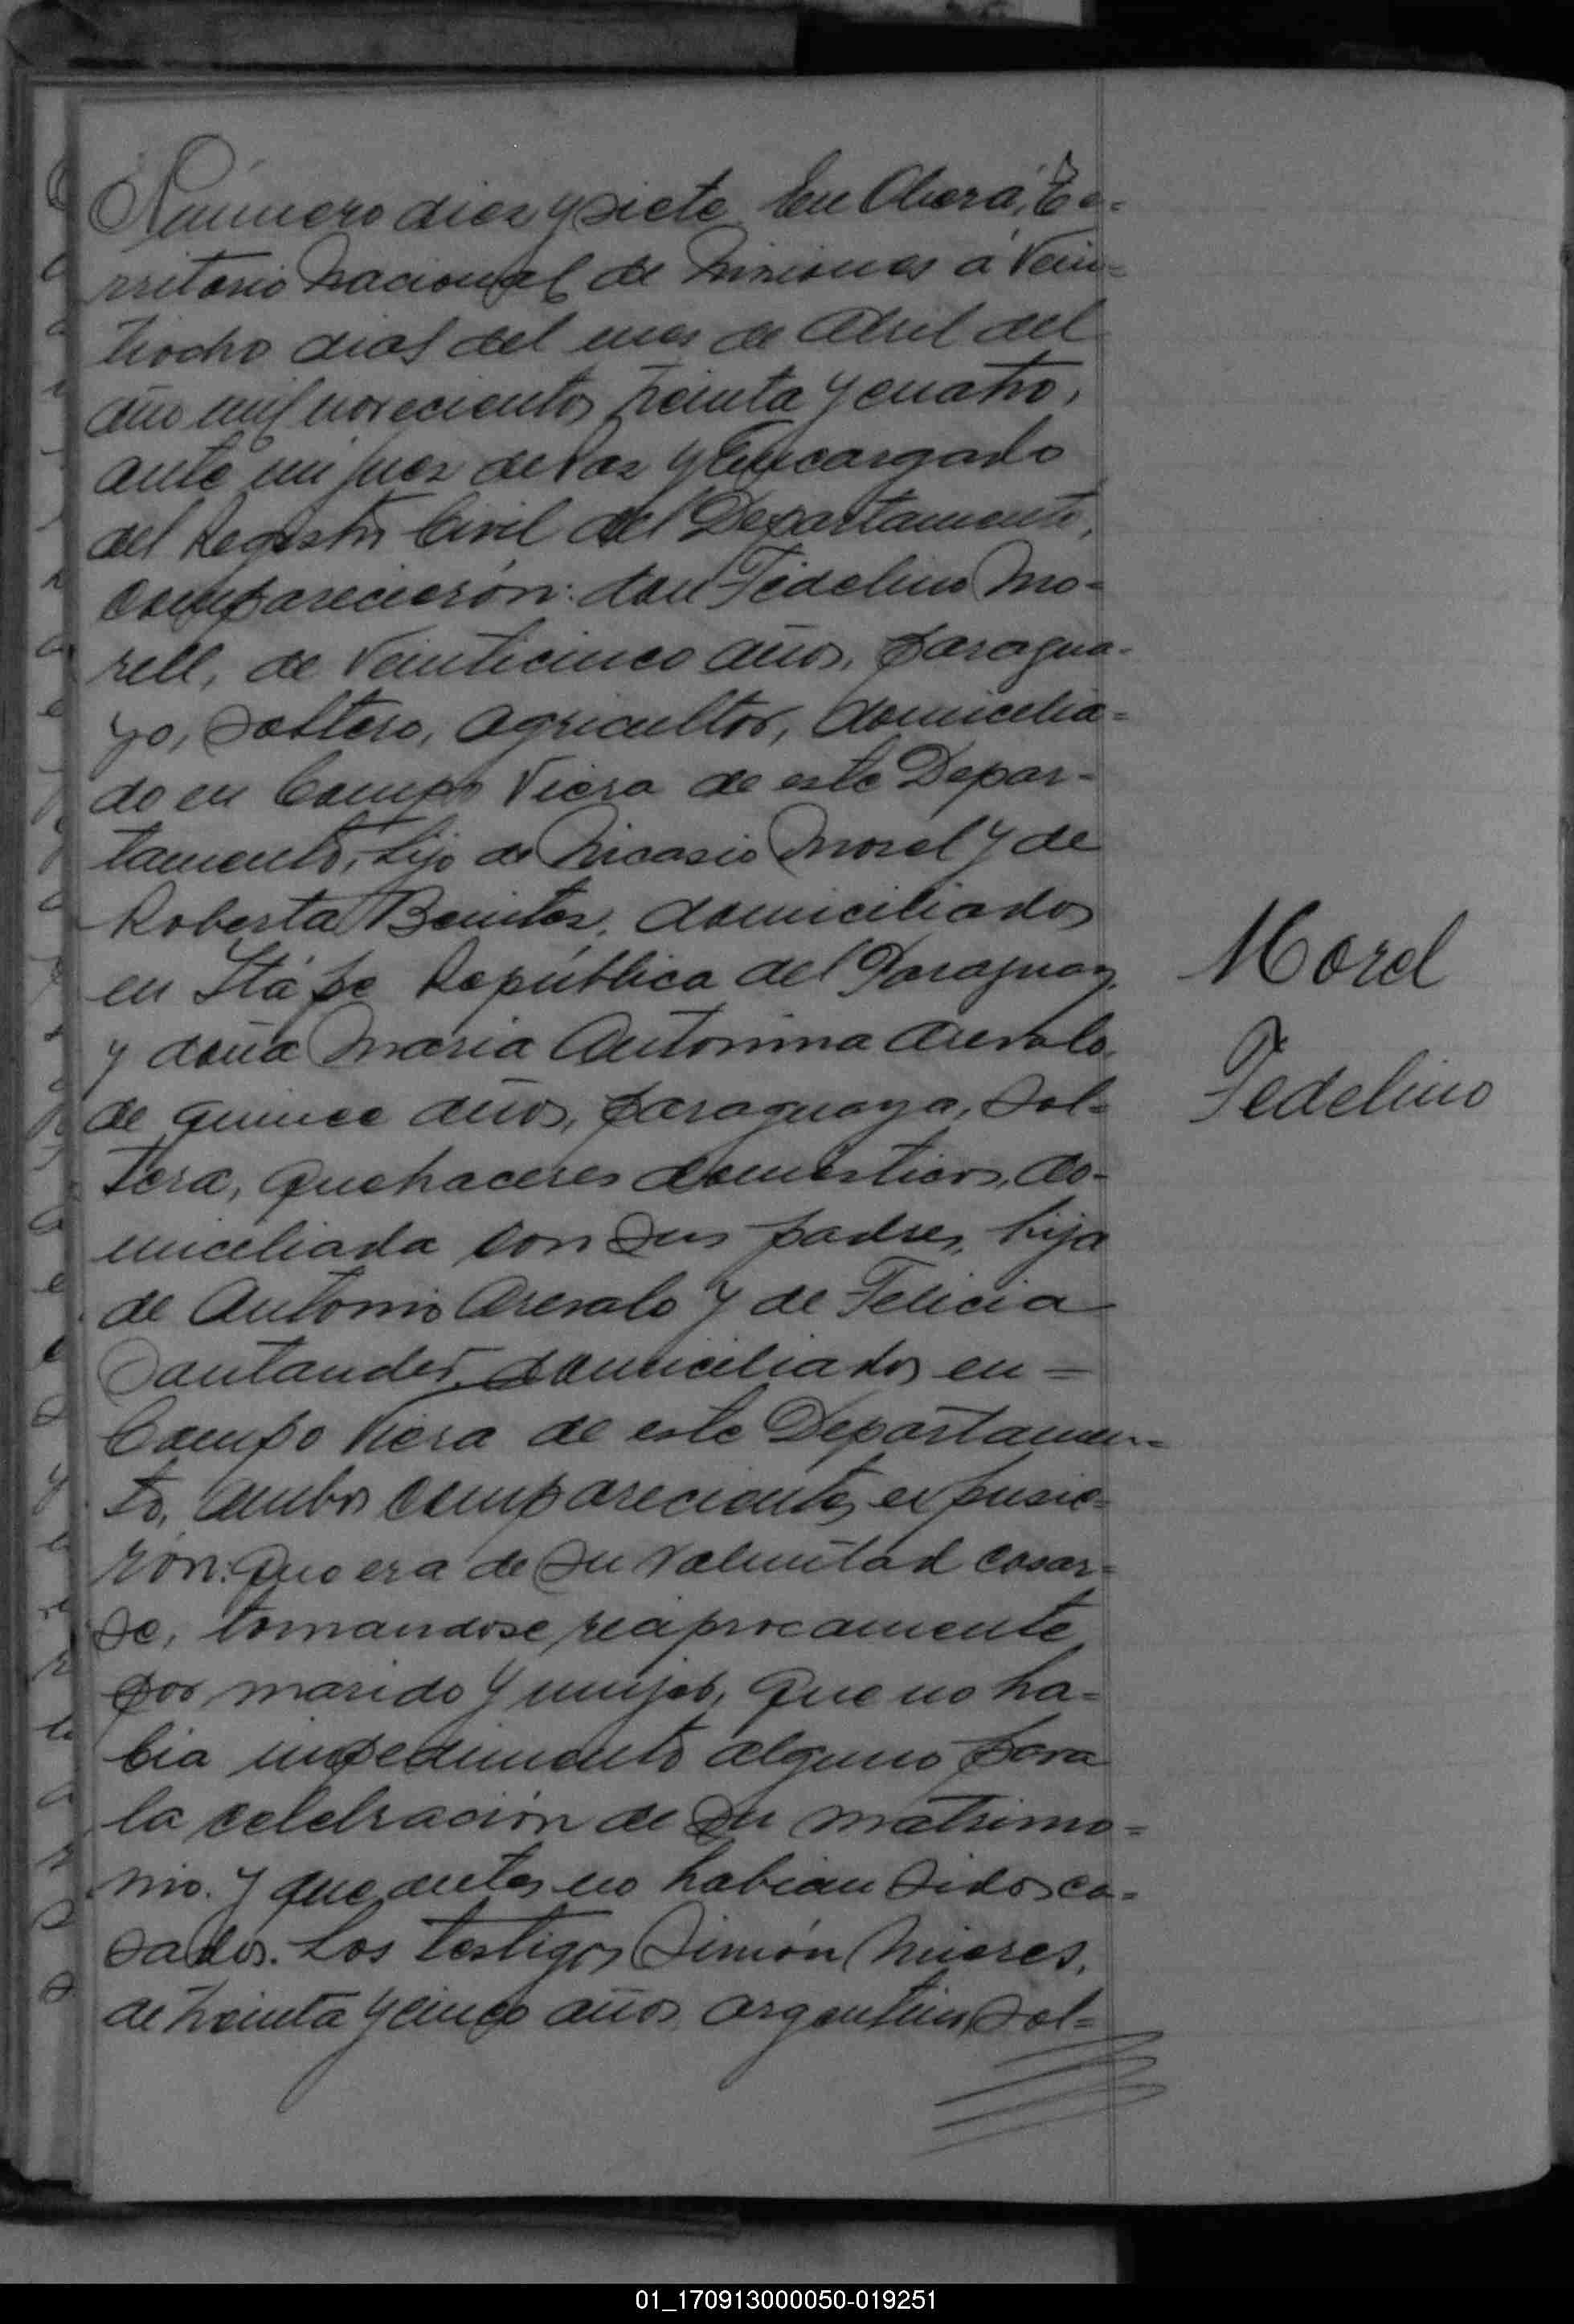 Número diez y siete. En Oberá, Te-
rritorio Nacional de Misiones a Vein-
tiocho dias del mes de Abril del
año mil novecientos treinta y cuatro,
ante mi Juez de Paz y Encargado
del Registro Civil del Departamento,
comparecierón: don Fedelino Mo-
rell, de veinticinco años, paragua-
yo, soltero, agricultor, domicilia-
do en Campo Viera de este Depar-
tamento, hijo de Nicasio Morel y de
Roberta Benitez, domiciliados
en Itá pe República del Paraguay,
y doña Maria Antonina Arevalo,
de quince años, paraguaya, sol-
tera, quehaceres domesticos, do-
miciliada con sus padres, hija
de Antonio Arevalo y de Felicia
Santander, domiciliados en =
Campo Viera de este Departamen-
to, ambos comparecientes expusie-
rón: que era de su voluntad casar-
se, tomandose reciprocamente
por marido y mujer, que no ha-
bia impedimento alguno para
la celebración de su matrimo-
nio. y que antes no habian sidos ca-
sados. Los testigos Simón Mieres,
de treinta y cinco años, argentino, sol-
Morel
Fedelino
01_170913000050-019251